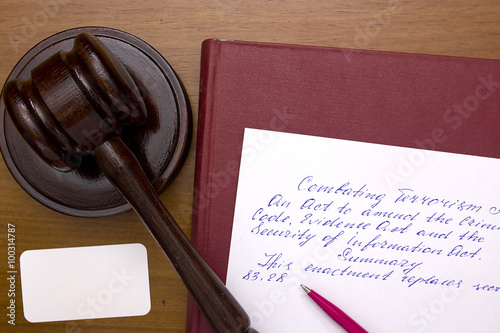 Combating Terrorism A
An Act to amend the Crimi
Code, Evidence Act and the
Security of Information Act.
Summary
This enactment replaces sect
83.28
© 100314787